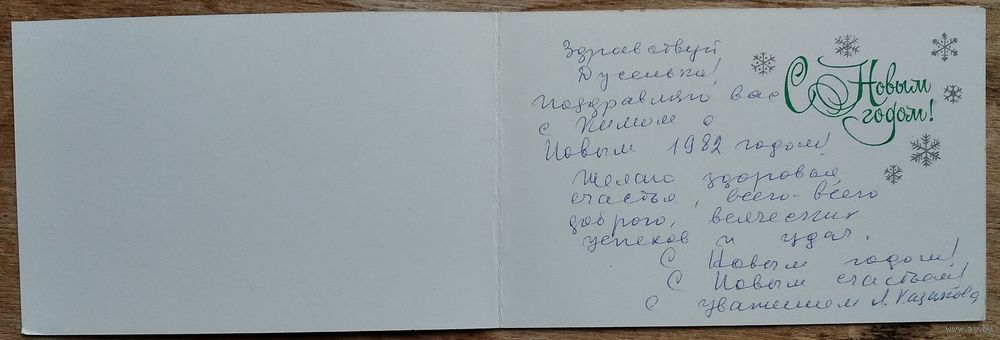 Здравствуй
Дусенька!
Поздравляю вас
с Кимом с
Новым 1982 годом!
Желаю здоровья,
счастья, всего-всего
доброго, всяческих
успехов и удач.
С Новым годом!
С Новым счастьем!
С уважением Л. Казакова
С Новым
годом!
www.ay.by